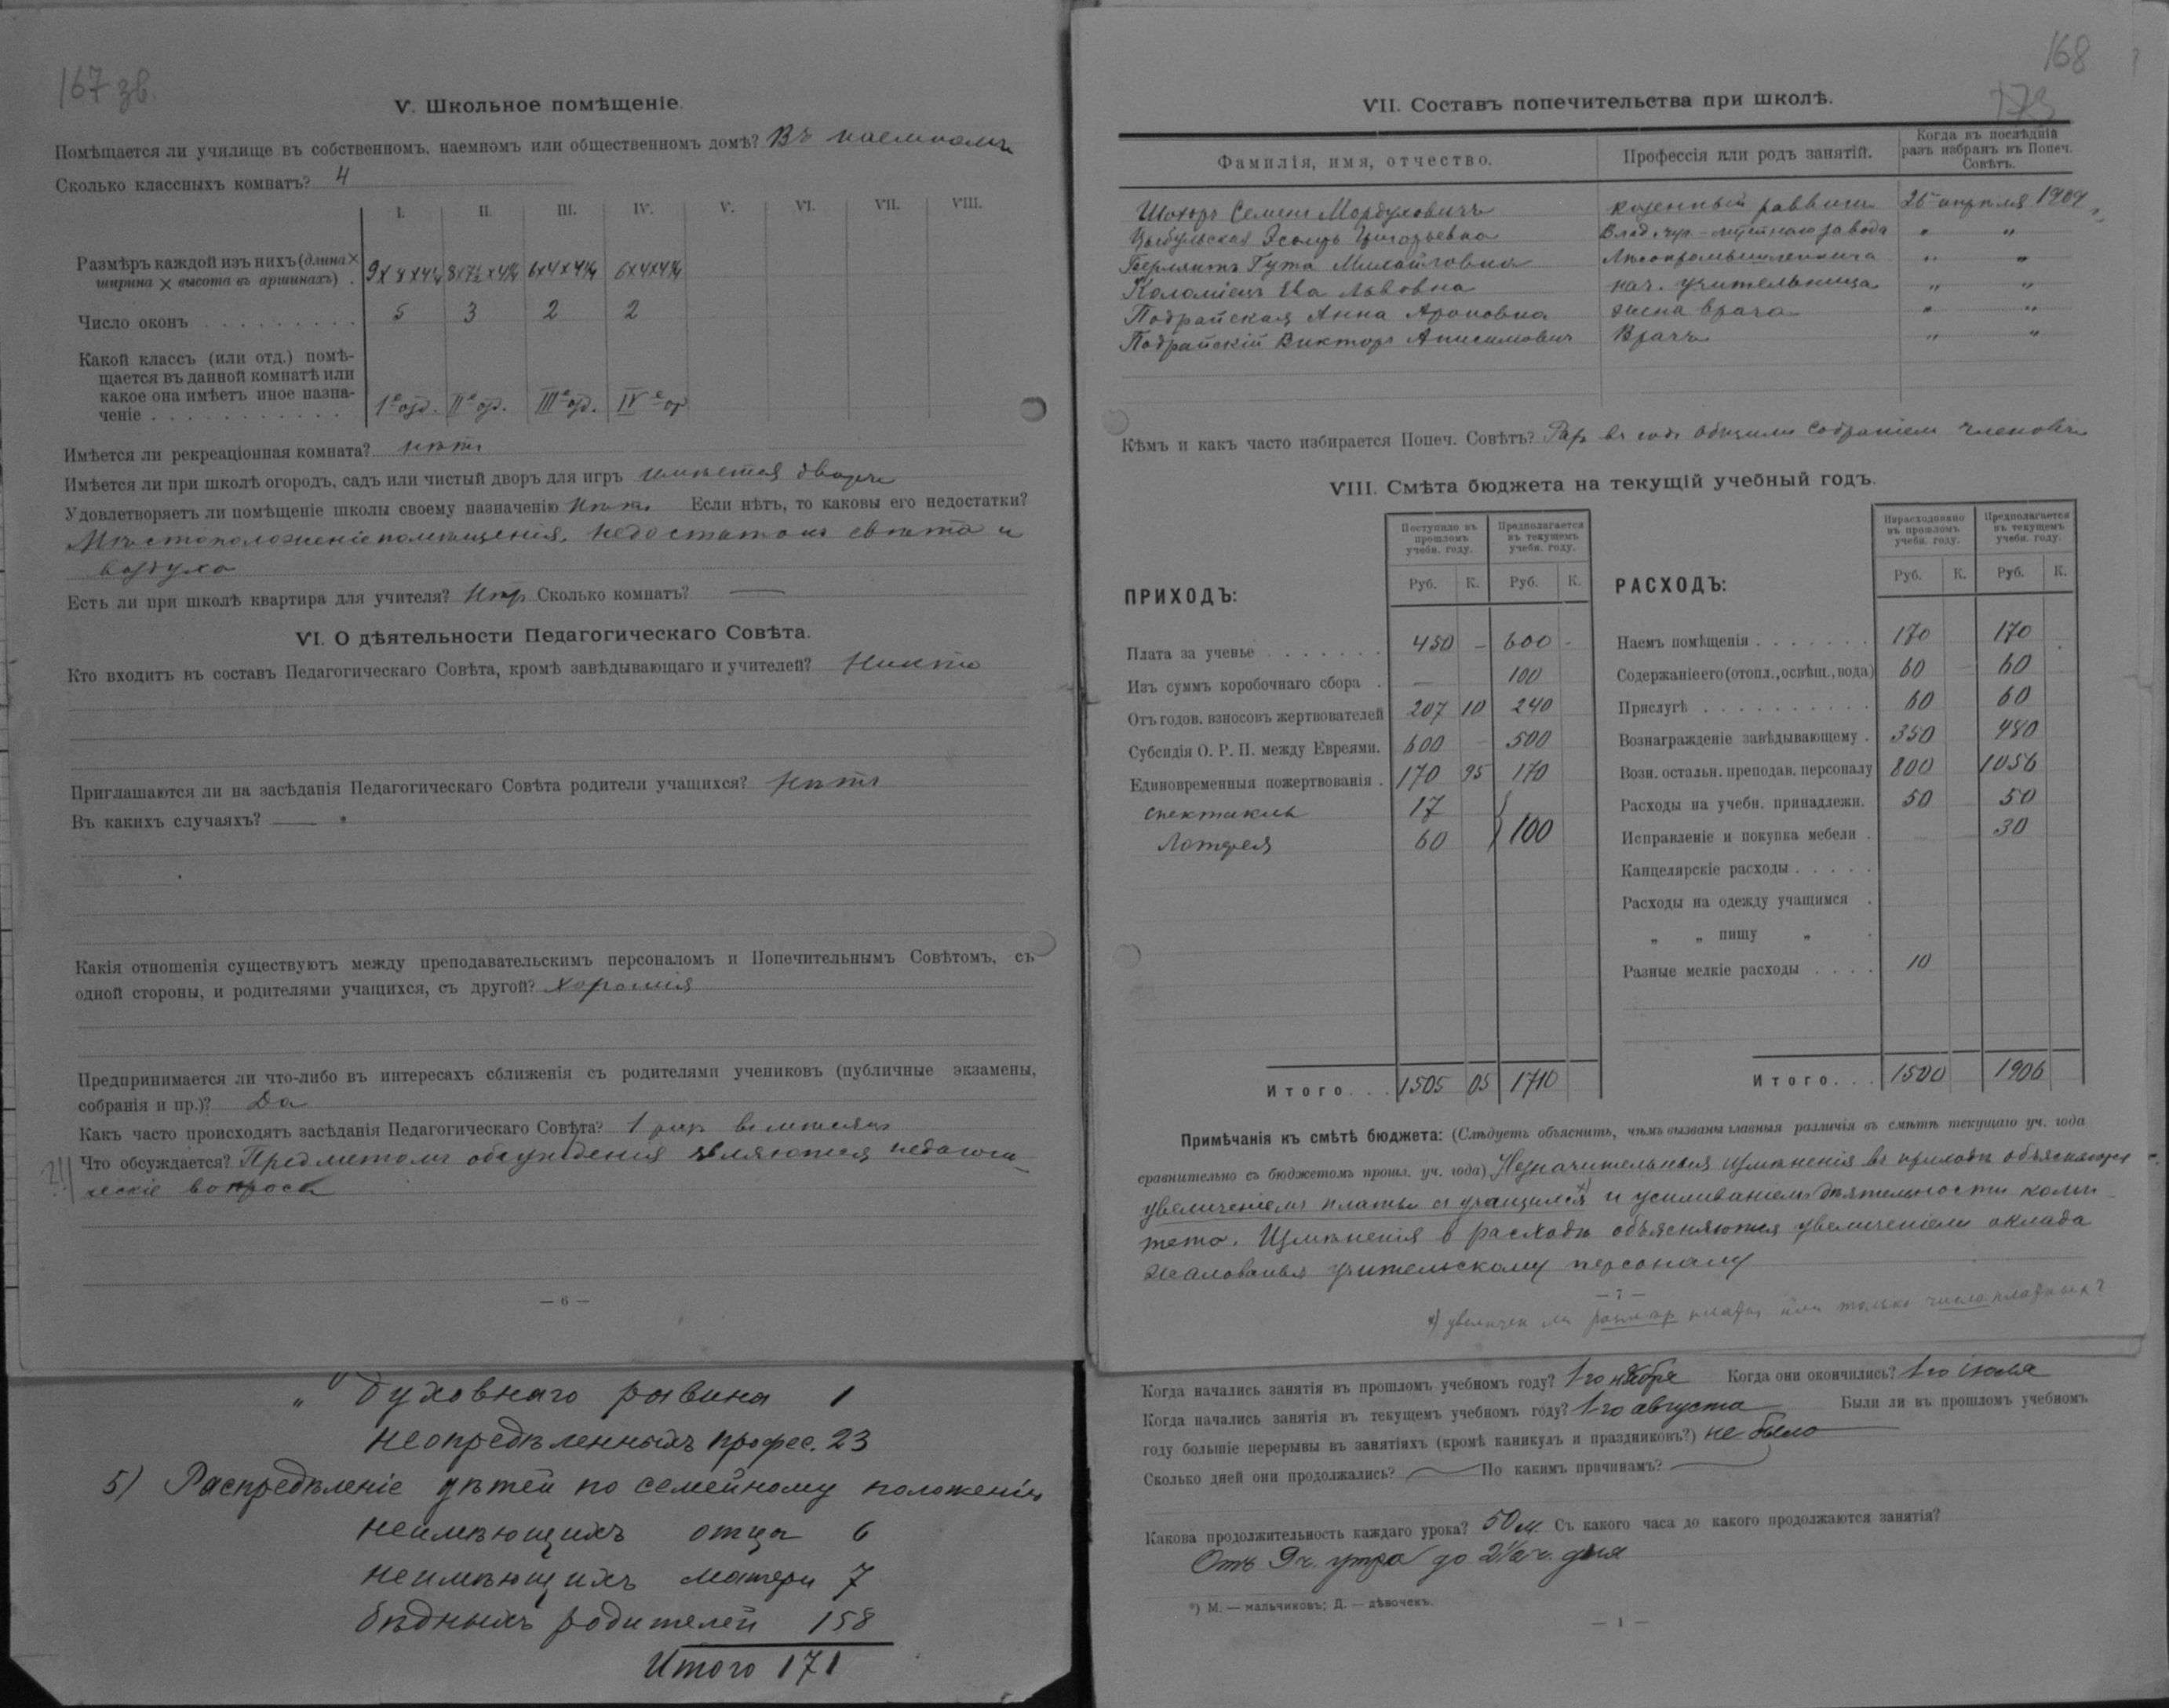 167 зв.
V. Школьное помѣщеніе.
Помѣщается ли училище въ собственномъ, наемномъ или общественномъ домѣ? Въ наемномъ
Сколько классныхъ комнатъ? 4
I. II. III. IV. V. VI. VII. VIII.
Размѣръ каждой изъ нихъ (длина ×
ширина × высота въ аршинахъ) .
Число оконъ . . . . . . . . . 5 3 2 2
Какой классъ (или отд.) помѣ-
щается въ данной комнатѣ или
какое она имѣетъ иное назна-
ченіе . . . . . . . . . . . 1е отд. IIе отд. IIIе отд. IVе от
Имѣется ли рекреаціонная комната? нѣтъ
Имѣется ли при школѣ огородъ, садъ или чистый дворъ для игръ имѣется дворъ
Удовлетворяетъ ли помѣщеніе школы своему назначенію Нѣтъ Если нѣтъ, то каковы его недостатки?
Мѣстоположеніе помѣщенія, недостатокъ свѣта и
воздуха
Есть ли при школѣ квартира для учителя? Нѣтъ Сколько комнатъ? —
VI. О дѣятельности Педагогическаго Совѣта.
Кто входитъ въ составъ Педагогическаго Совѣта, кромѣ завѣдывающаго и учителей? Никто
Приглашаются ли на засѣданія Педагогическаго Совѣта родители учащихся? Нѣтъ
Въ какихъ случаяхъ? —
Какія отношенія существуютъ между преподавательскимъ персоналомъ и Попечительнымъ Совѣтомъ, съ
одной стороны, и родителями учащихся, съ другой? хорошія
Предпринимается ли что-либо въ интересахъ сближенія съ родителями учениковъ (публичные экзамены,
собранія и пр.)? Да
Какъ часто происходятъ засѣданія Педагогическаго Совѣта? 1 разъ въ мѣсяцъ
Что обсуждается? Предметомъ обсужденія являются педагоги-
ческіе вопросы
— 6 —
„ духовнаго равина 1
неопредѣленныхъ професс. 23
5) Распредѣленіе дѣтей по семейному положенію
неимѣющихъ отца 6
неимѣющихъ матери 7
бѣдныхъ родителей 158
Итого 171
168
173
VII. Составъ попечительства при школѣ.
Фамилія, имя, отчество. Профессія или родъ занятій. Когда въ послѣдній
разъ избранъ въ Попеч.
Совѣтъ.
Шохоръ Семенъ Мордуховичъ казенный раввинъ 25 апрѣля 1909
Цыбульская Эсѳирь Григорьевна Влад. чуг.-литейнаго завода „ „
Берлянтъ Гута Михайловна Лѣсопромышленница „ „
Коломіецъ Ева Львовна нач. учительница „ „
Подрайская Анна Ароновна жена врача „ „
Подрайскій Викторъ Анисимовичъ Врачъ „ „
Кѣмъ и какъ часто избирается Попеч. Совѣтъ? Разъ въ годъ общимъ собраніемъ членовъ
VIII. Смѣта бюджета на текущій учебный годъ.
ПРИХОДЪ: Поступило въ прошломъ учебн. году. Предполагается въ текущемъ учебн. году.
Руб. К. Руб. К.
Плата за ученье . . . . . . . 450 – 600 -
Изъ суммъ коробочнаго сбора . — 100
Отъ годов. взносовъ жертвователей 207 10 240
Субсидія О. Р. П. между Евреями. 600 – 500
Единовременныя пожертвованія . 170 95 170
спектакль 17
Лотерея 60 } 100
Итого. . . 1505 05 1710
РАСХОДЪ: Израсходовано въ прошломъ учебн. году. Предполагается въ текущемъ учебн. году.
Руб. К. Руб. К.
Наемъ помѣщенія . . . . . . . 170 170
Содержаніе его (отопл., освѣщ., вода) 60 – 60
Прислугѣ . . . . . . . . . . 60 60
Вознагражденіе завѣдывающему . 350 480
Возн. остальн. преподав. персоналу 800 1056
Расходы на учебн. принадлежн. 50 50
Исправленіе и покупка мебели . 30
Канцелярскіе расходы . . . . .
Расходы на одежду учащимся .
„ „ пищу „ .
Разные мелкіе расходы . . . . 10
Итого. . . 1500 1906
Примѣчанія къ смѣтѣ бюджета: (Слѣдуетъ объяснить, чѣмъ вызваны главныя различія въ смѣтѣ текущаго уч. года
сравнительно съ бюджетомъ прошл. уч. года) Незначительныя измѣненія въ приходѣ объясняются
увеличеніемъ платы съ учащихся x) и усиливаніемъ дѣятельности коми-
тета. Измѣненія в расходѣ объясняются увеличеніемъ оклада
жалованья учительскому персоналу
— 7 —
x) увеличен ли размѣр платы или только число платных?
Когда начались занятія въ прошломъ учебномъ году? 1-го ноября Когда они окончились? 1-го іюля
Когда начались занятія въ текущемъ учебномъ году? 1-го августа Были ли въ прошломъ учебномъ
году большіе перерывы въ занятіяхъ (кромѣ каникулъ и праздниковъ?) не было
Сколько дней они продолжались? — По какимъ причинамъ? —
Какова продолжительность каждаго урока? 50 м. Съ какого часа до какого продолжаются занятія?
Отъ 9 ч. утра до 2½ ч. дня
*) М. — мальчиковъ; Д. — дѣвочекъ.
— 1 —